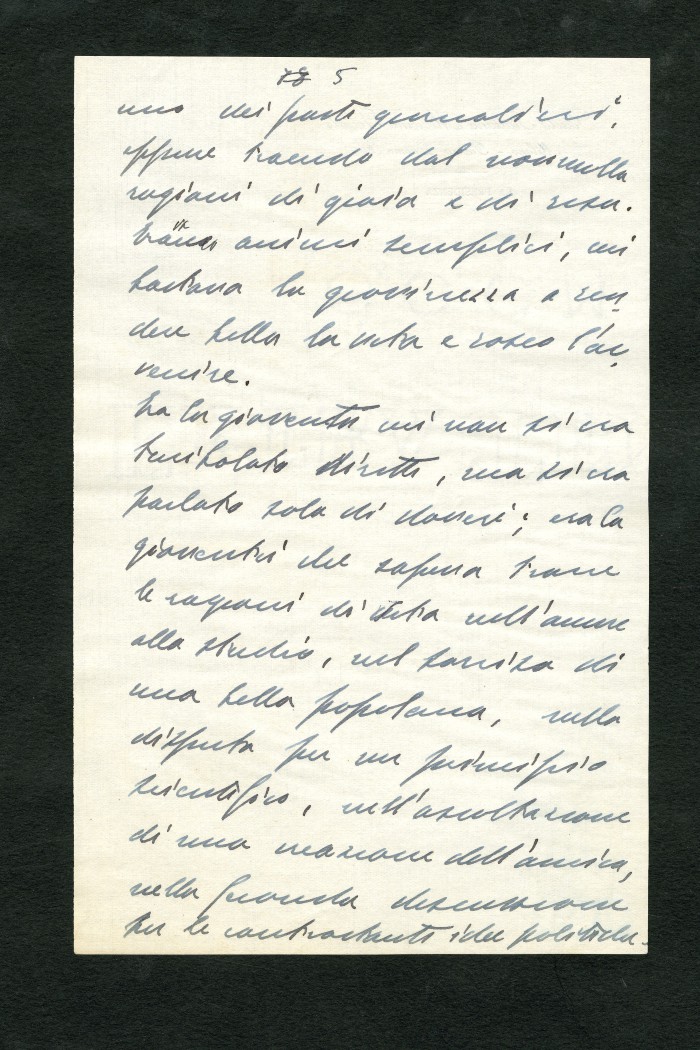 5
uno dei pasti giornalieri,
oppure traendo dal nonnulla
ragioni di gioia e di resa.
Erano animi semplici, cui
bastava la giovinezza a ren
dere bella la vita e roseo l'av
venire.
Era la gioventù cui non si era
diritti, ma si era
parlato solo di doveri; era la
gioventù che sapeva trarre
le ragioni di vita nell'amore
allo studio, nel sorriso di
una bella popolana, nella
disputa per un principio
scientifico, nell'ascoltazione
di una mazione dell'amica,
nella feconda discussione
tra le contrastanti idee politiche.